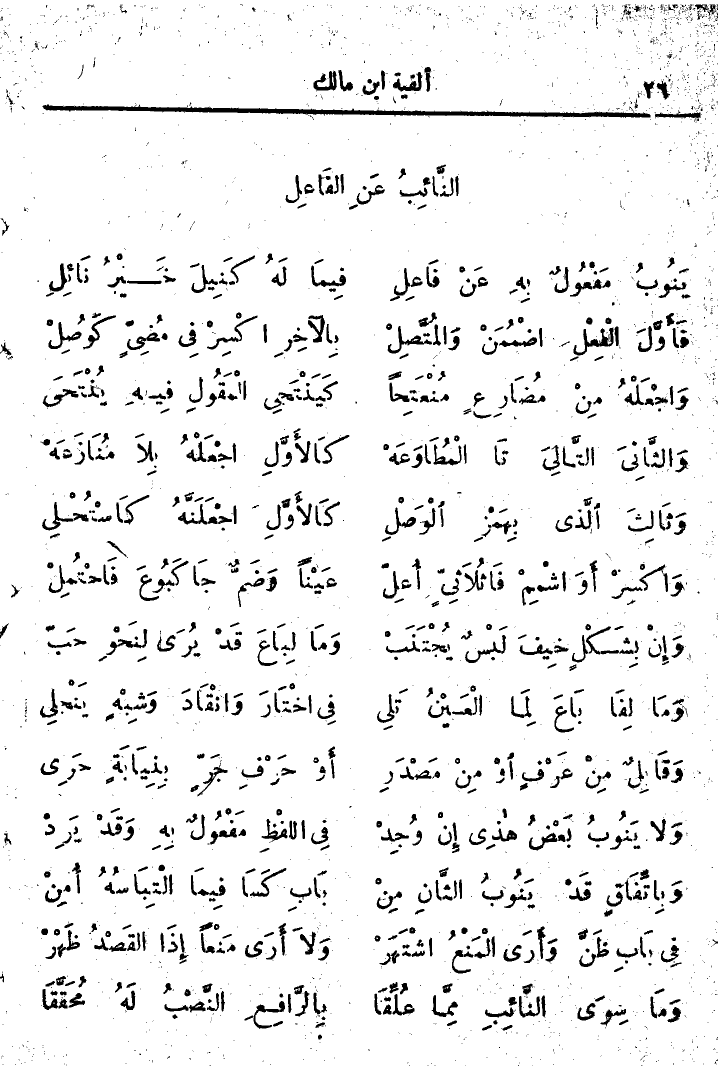 ٢٦ ألفية ابن مالك
النَّائِبُ عَنِ الفَاعِلِ
يَنُوبُ مَفْعُولٌ بِهِ عَنْ فَاعِلِ فِيمَا لَهُ كَنِيلَ خَيْرُ نَائِلِ
فَأَوَّلَ الْفِعْلِ اضْمُمَنْ وَالمُتَّصِلْ بِالآخِرِ اكْسِرْ فِى مُضِىٍّ كَوُصِلْ
وَاجْعَلْهُ مِنْ مُضَارِعٍ مُنْفَتِحاً كَيَنْتَحِى الْمَقُولِ فِيهِ يُنْتَحَى
وَالثَّانِىَ التَّالِىَ تَا الْمُطَاوَعَهْ كَالأَوَّلِ اجْعَلْهُ بِلاَ مُنَازَعَهْ
وَثَالِثَ الَّذِى بِهَمْزِ الْوَصْلِ كَالأَوَّلِ اجْعَلَنَّهُ كَاسْتُحْلِى
وَاكْسِرْ أَوَ اشْمِمْ فَاثُلَاثِىٍّ أُعِلّ عَيْناً وَضَمٌّ جَا كَبُوعَ فَاحْتُمِلْ
وَإِنْ بِشَكْلٍ خِيفَ لَبْسٌ يُجْتَنَبْ وَمَا لِبَاعَ قَدْ يُرَى لِنَحْوِ حَبّ
وَمَا لِفَا بَاعَ لِمَا الْعَيْنُ تَلِى فِى اخْتَارَ وَانْقَادَ وَشِبْهٍ يَنْجَلِى
وَقَابِلٌ مِنْ ظَرْفٍ اوْ مِنْ مَصْدَرِ أَوْ حَرْفِ جَرٍّ بِنِيَابَةٍ حَرِى
وَلا يَنُوبُ بَعْضُ هٰذِى إِنْ وُجِدْ فِى اللفْظِ مَفْعُولٌ بِهِ وَقَدْ يَرِدْ
وَبِاتِّفَاقٍ قَدْ يَنُوبُ الثَّانِ مِنْ بَابِ كَسَا فِيمَا الْتِبَاسُهُ أُمِنْ
فِى بَابِ ظَنَّ وَأَرَى الْمَنْعُ اشْتَهَرْ وَلاَ أَرَى مَنْعاً إِذَا القَصْدُ ظَهَرْ
وَمَا سِوَى النَّائِبِ مِمَّا عُلِّقَا بِالرَّافِعِ النَّصْبُ لَهُ مُحَقَّقَا